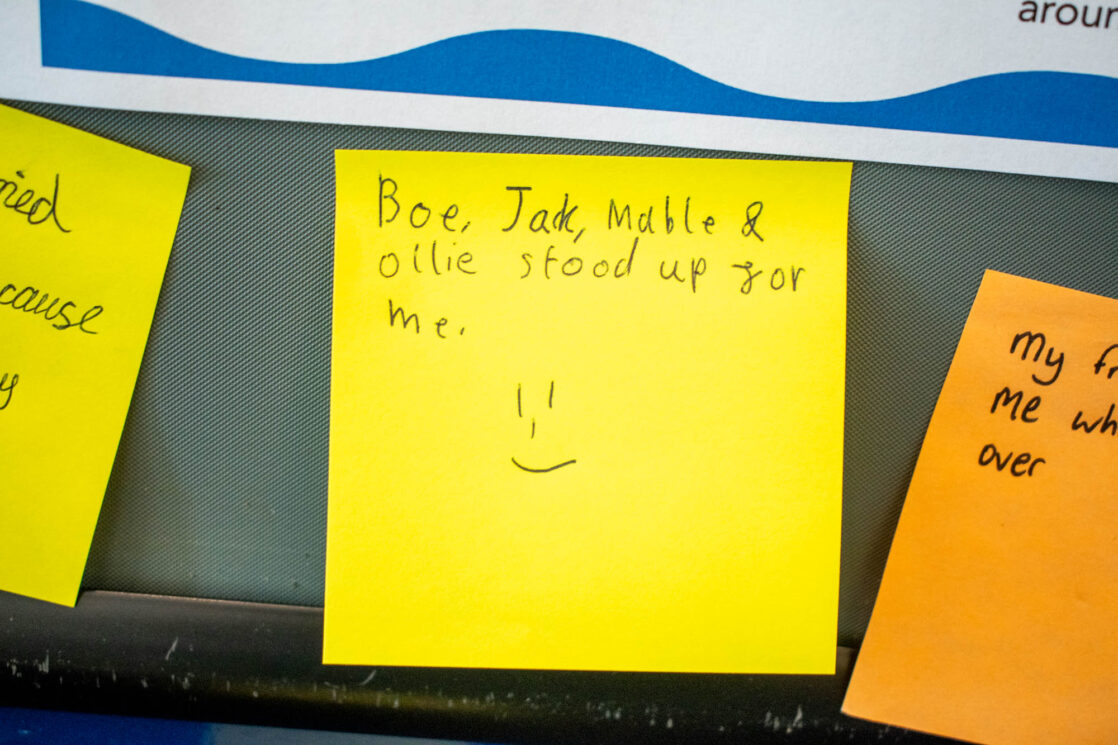 aroun
ried
cause
y
Boe, Jak, Mable &
ollie stood up for
me.
My fr
Me wh
over